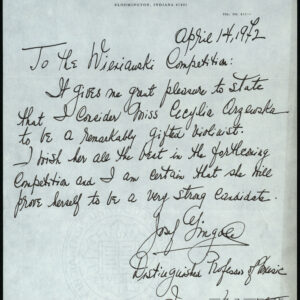 BLOOMINGTON, INDIANA 47401
April 14, 1972
To the Wieniawski
Competition:
It gives me great pleasure to state
that I consider Miss Cecylia Arzewska
to be a remarkably gifted violinist.
I wish her all the best in the forthcoming
Competition and I am certain that she will
prove herself to be a very strong candidate.
Josef Gingold
Distinguished Professor of Music